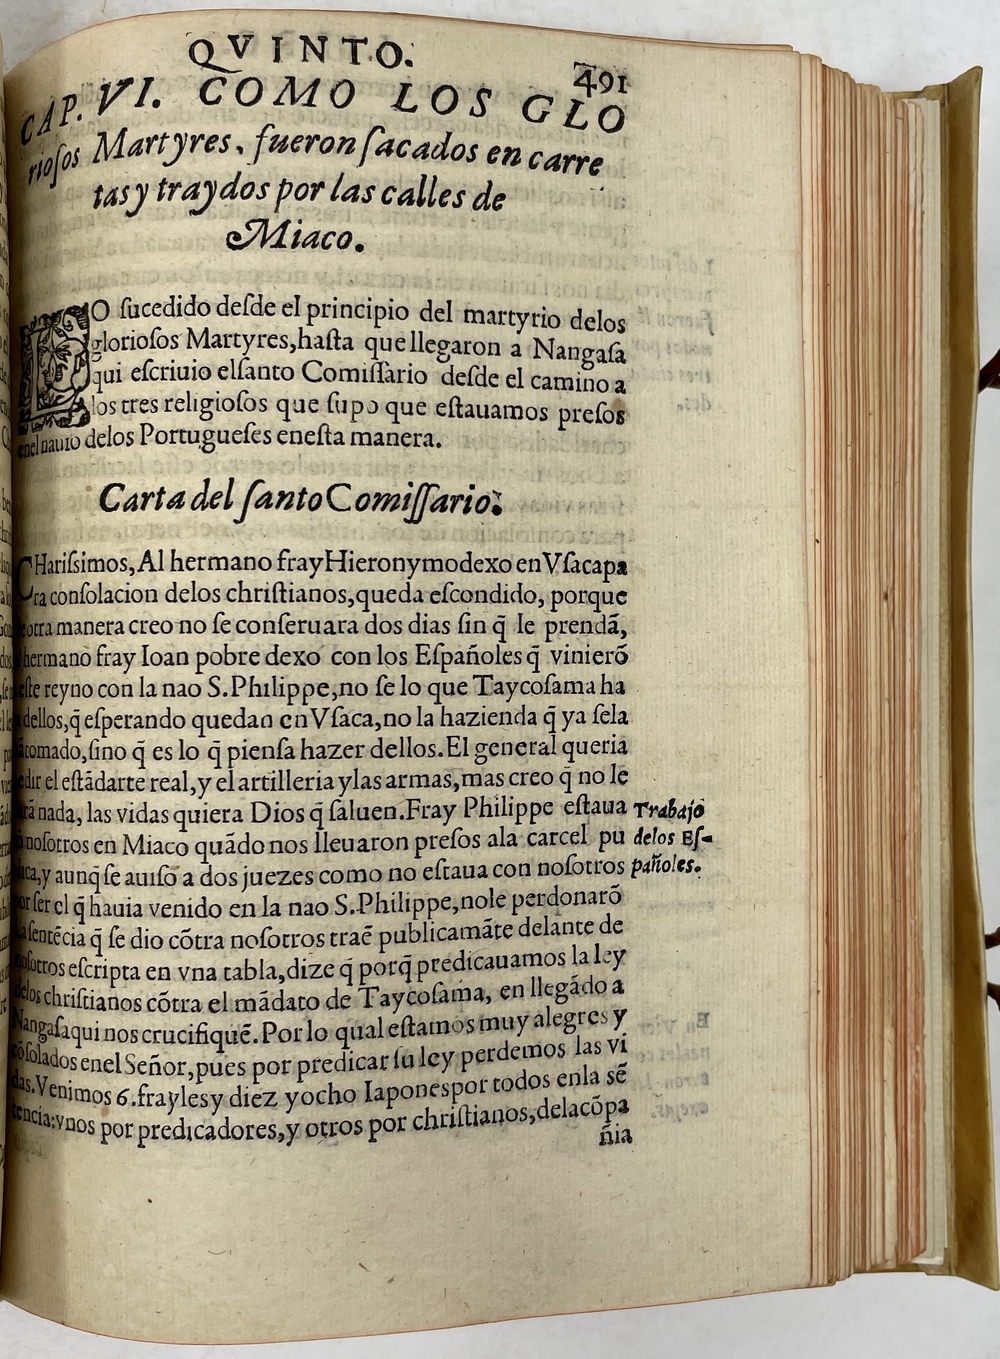 QVINTO.
491
CAP. VI. COMO LOS GLO
rioſos Martyres, fueron ſacados en carre
tas y traydos por las calles de
Miaco.
LO ſucedido deſde el principio del martyrio delos
glorioſos Martyres, haſta que llegaron a Nangaſa
qui eſcriuio elſanto Comiſſario deſde el camino a
los tres religioſos que ſupo que eſtauamos preſos
enel nauio delos Portugueſes eneſta manera.
Carta del ſanto Comiſſario.
CHariſsimos, Al hermano fray Hieronymo dexo en Vſaca pa
ra conſolacion delos chriſtianos, queda eſcondido, porque
otra manera creo no ſe conſeruara dos dias ſin q̃ le prendã,
hermano fray Ioan pobre dexo con los Eſpañoles q̃ vinierõ
eſte reyno con la nao S. Philippe, no ſe lo que Taycoſama ha
dellos, q̃ eſperando quedan en Vſaca, no la hazienda q̃ ya ſela
tomado, ſino q̃ es lo q̃ pienſa hazer dellos. El general queria
edir el eſtãdarte real, y el artilleria y las armas, mas creo q̃ no le
rã nada, las vidas quiera Dios q̃ ſaluen. Fray Philippe eſtaua
noſotros en Miaco quãdo nos lleuaron preſos ala carcel pu
lica, y aunq̃ ſe auiſo a dos juezes como no eſtaua con noſotros
or ſer el q̃ hauia venido en la nao S. Philippe, nole perdonarõ
a ſentẽcia q̃ ſe dio cõtra noſotros traẽ publicamãte delante de
noſotros eſcripta en vna tabla, dize q̃ porq̃ predicauamos la ley
delos chriſtianos cõtra el mãdato de Taycoſama, en llegãdo a
Nangaſaqui nos crucifiquẽ. Por lo qual eſtamos muy alegres y
cõſolados enel Señor, pues por predicar ſu ley perdemos las vi
das. Venimos 6. frayles y diez y ocho Iapones por todos enla sẽ
tencia: vnos por predicadores, y otros por chriſtianos, dela cõpa
ñia
Trabajo
delos Eſ-
pañoles.